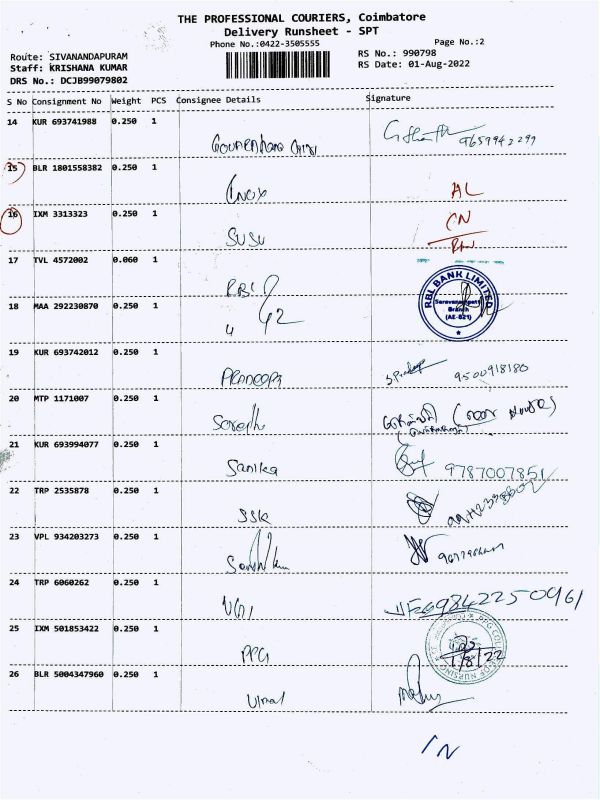 THE PROFESSIONAL COURIERS, Coimbatore
Delivery Runsheet - SPT
Phone No.:0422-3505555
Page No.:2
Route: SIVANANDAPURAM
Staff: KRISHANA KUMAR
DRS No.: DCJB99079802
RS No.: 990798
RS Date: 01-Aug-2022
S No Consignment No Weight PCS Consignee Details Signature
14 KUR 693741988 0.250 1
9659942299
15 BLR 1801558382 0.250 1
Inox AL
16 IXM 3313323 0.250 1
SUSU CN
17 TVL 4572002 0.060 1
RBL
RBL BANK LIMITED
Saravanampatti
Branch
(AE-821)
18 MAA 292230870 0.250 1
19 KUR 693742012 0.250 1
9500918180
20 MTP 1171007 0.250 1
21 KUR 693994077 0.250 1
Sanika 9787007851
22 TRP 2535878 0.250 1
SSK
23 VPL 934203273 0.250 1
24 TRP 6060262 0.250 1
9842250961
25 IXM 501853422 0.250 1
PPG
PPG COLLEGE OF NURSING
1/8/22
26 BLR 5004347960 0.250 1
Vimal
IN